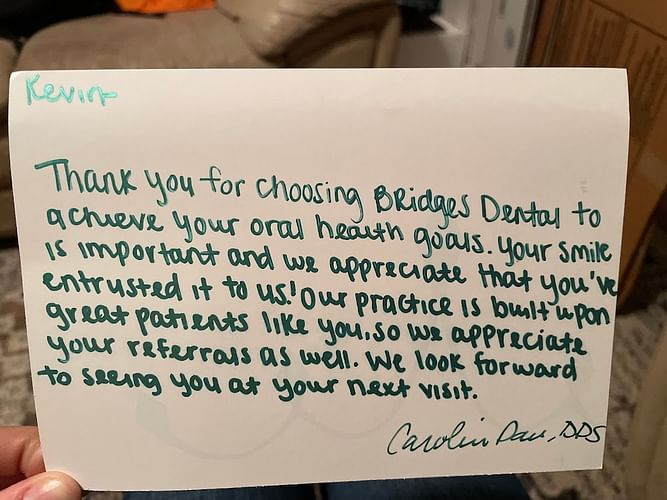 Kevin
Thank you for choosing Bridges Dental to
achieve your oral health goals. Your smile
is important and we appreciate that you've
entrusted it to us! Our practice is built upon
great patients like you, so we appreciate
your referrals as well. We look forward
to seeing you at your next visit.
Carolin , DDS